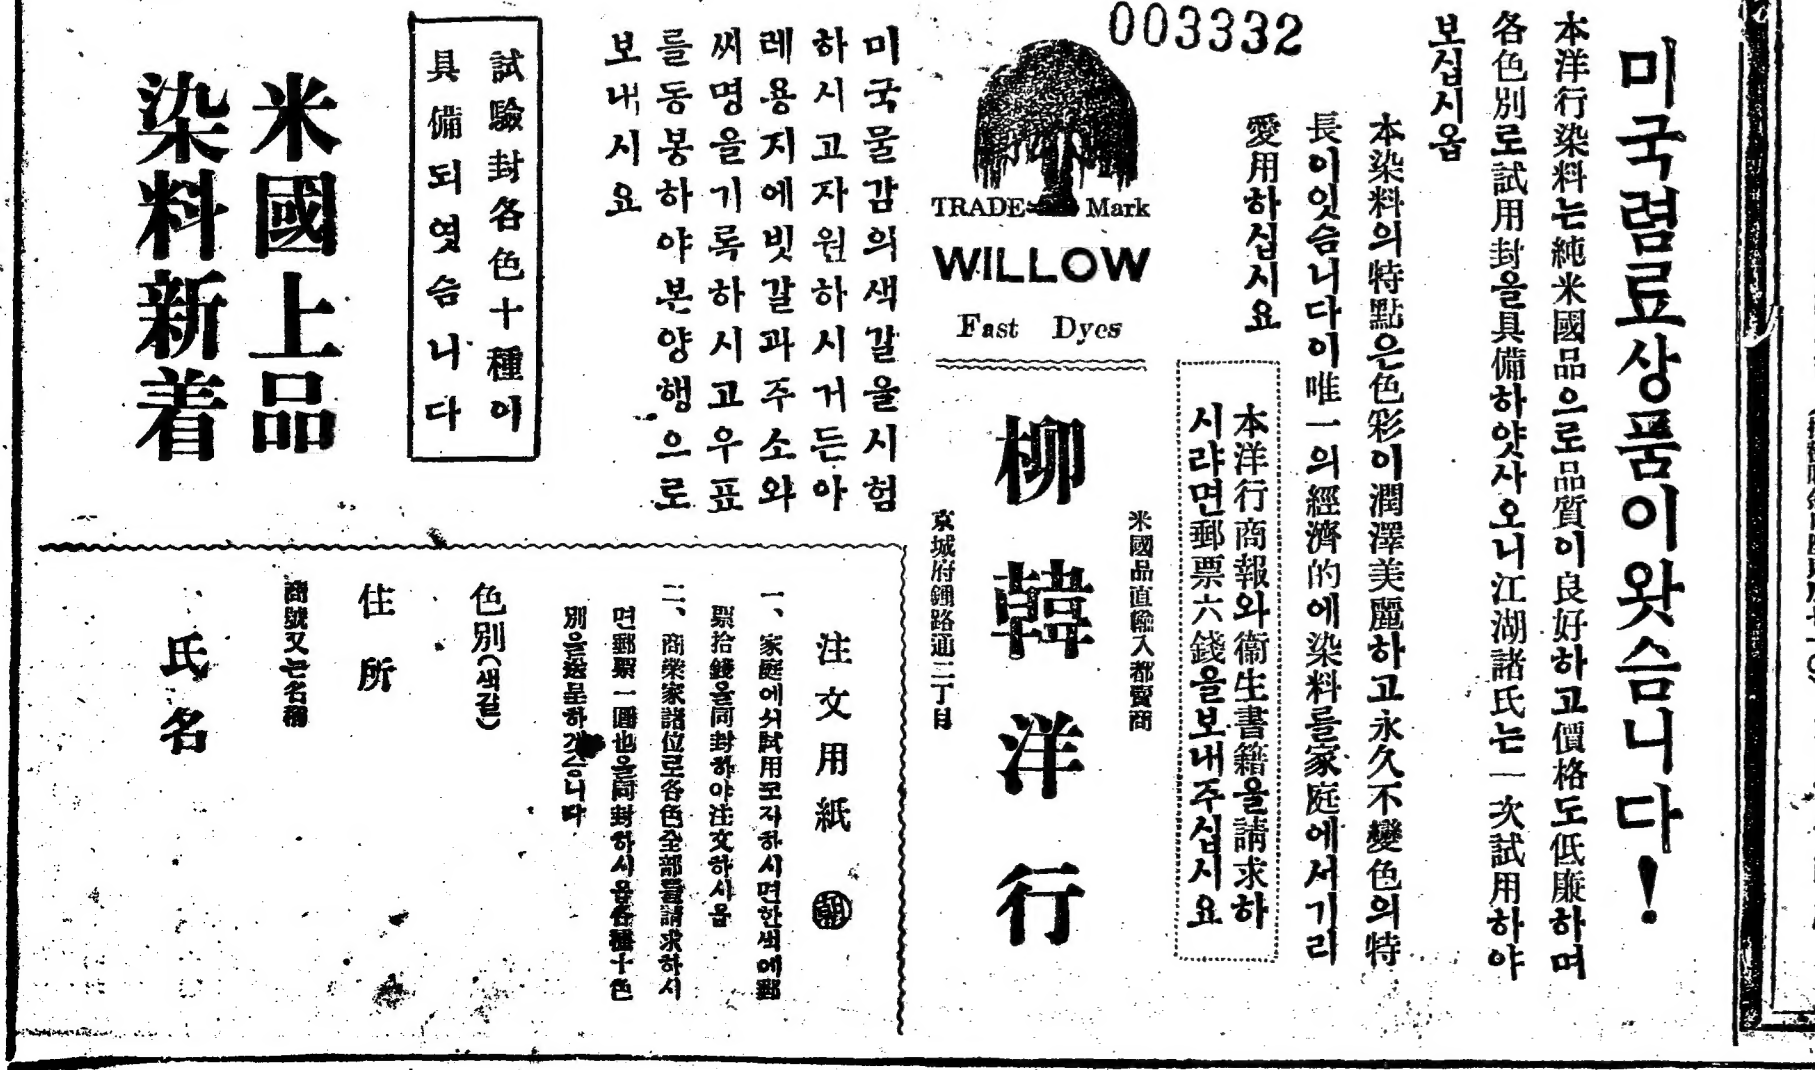 003332
미국렴료상품이왓슴니다!
本洋行染料는純米國品으로品質이良好하고價格도低廉하며
各色別로試用封을具備하얏사오니江湖諸氏는一次試用하야
보십시옵
本染料의特點은色彩이潤澤美麗하고永久不變色의特
長이잇슴니다이唯一의經濟的에染料를家庭에서기리
愛用하십시요
本洋行商報와衛生書籍을請求하
시랴면郵票六錢을보내주십시요
TRADE Mark
WILLOW
Fast Dyes
米國品直輸入都賣商
柳韓洋行
京城府鍾路通二丁目
미국물감의색갈을시험
하시고자원하시거든아
레용지에빗갈과주소와
씨명을기록하시고우표
를동봉하야본양행으로
보내시요
試驗封各色十種이
具備되엿슴니다
米國上品
染料新着
注文用紙 朝
一、家庭에서試用코자하시면한색에郵
票拾錢을同封하야注文하시옵
二、商業家諸位로各色全部를請求하시
면郵票一圜也을同封하시옵各種十色
別을送呈하겟슴니다
色別(색갈)
住所
商號又는名稱
氏名